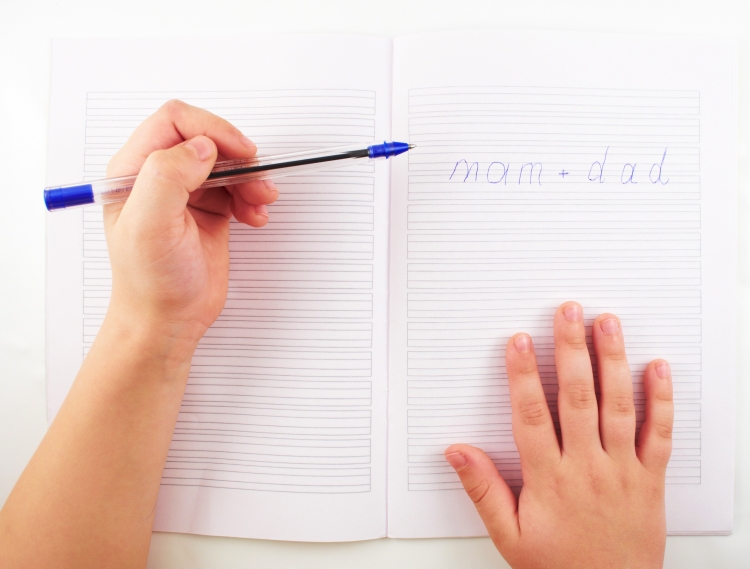 mam + dad